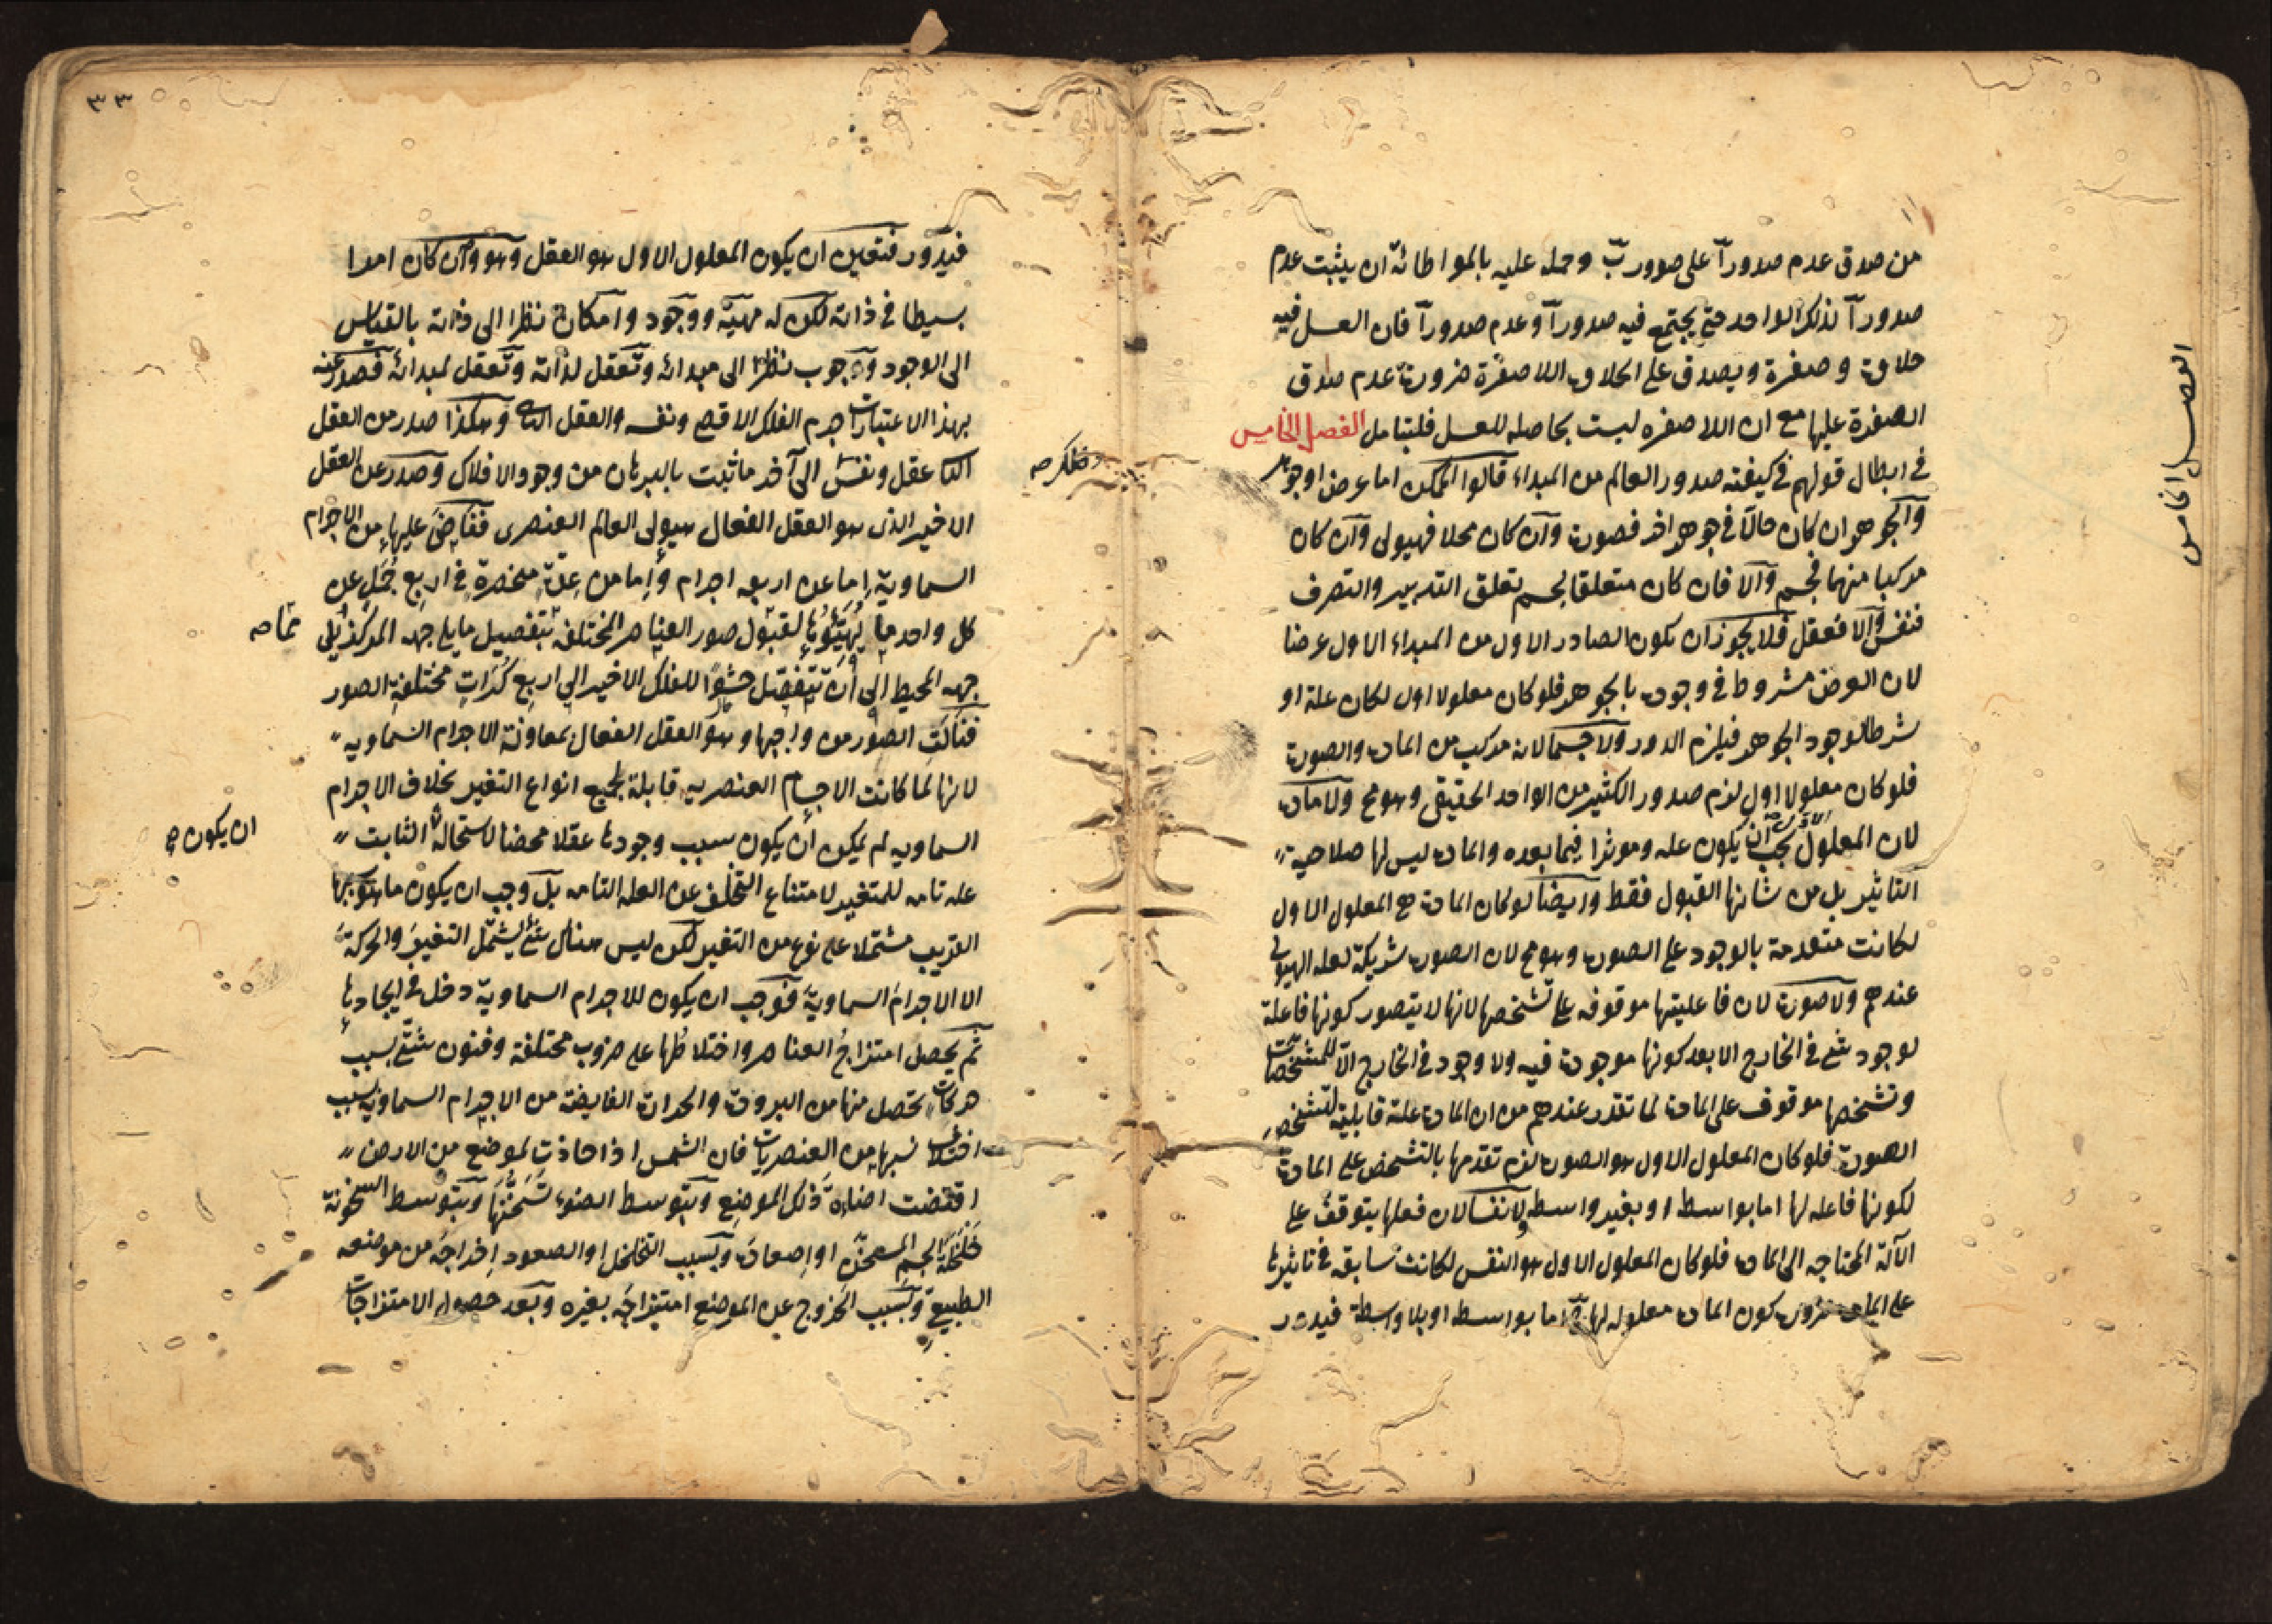 من صدق عدم صدور آ على صدور ب وحمله عليه بالمواطاة ان يثبت عدم
صدور آ لذلك الواحد حتى يجتمع فيه صدور آ وعدم صدور آ فان العسل فيه
حلاوة وصفرة ويصدق على الحلاوة اللاصفرة ضرورة عدم صدق
الصفرة عليها مع ان اللاصفره ليست بحاصله للعسل فليتامل الفصل الخامس
في ابطال قولهم في كيفية صدور العالم من المبداء قالوا الممكن اما عرض او جوهر
والجوهر ان كان حالا في جوهر اخر فصورة وان كان محلا فهيولى وان كان
مركبا منهما فجسم والا فان كان متعلقا بجسم تعلق التدبير والتصرف
فنفس والا فعقل فلا يجوز ان يكون الصادر الاول من المبداء الاول عرضا
لان العرض مشروط في وجوده بالجوهر فلو كان معلولا اول لكان علة او
شرطا لوجود الجوهر فيلزم الدور ولا جسما لانه مركب من المادة والصورة
فلو كان معلولا اول لزم صدور الكثير من الواحد الحقيقي وهو مح ولا مادة
لان المعلول الاول يجب ان يكون علة وموثرا فيما بعده والمادة ليس لها صلاحية
التاثير بل من شانها القبول فقط وايضا لو كان المادة هي المعلول الاول
لكانت متقدمة بالوجود على الصورة وهو مح لان الصورة شريكة لعلة الهيولى
عندهم ولا صورة لان فاعليتها موقوفه على تشخصها لانها لا يتصور كونها فاعلة
لوجود شئ في الخارج الا بعد كونها موجودة فيه ولا وجود في الخارج الا للمشخصات
وتشخصها موقوف على المادة لما تقرر عندهم من ان المادة علة قابلية لتشخص
الصورة فلو كان المعلول الاول هو الصورة لزم تقدمها بالتشخص على المادة
لكونها فاعله لها اما بواسطة او بغير واسطة ولا نفسا لان فعلها يتوقف على
الآلة المحتاجه الى المادة فلو كان المعلول الاول هو النفس لكانت سابقه في تاثيرها
على المادة ضرورة كون المادة معلوله لها ح اما بواسطه او بلا واسطة فيدور
الفصل الخامس
٣٣
فيدور فتعين ان يكون المعلول الاول هو العقل وهو وان كان امرا
بسيطا في ذاته لكن له مهية ووجود وامكان نظرا الى ذاته بالقياس
الى الوجود ووجوب نظرا الى مبدائه وتعقل لذاته وتعقل لمبدائه فصدر عنه
بهذا الاعتبارات جرم الفلك الاقصى ونفسه والعقل الثاني وهكذا صدر من العقل
الثاني عقل ونفس الى آخر ما ثبت بالبرهان من وجود الافلاك وصدر عن العقل
الاخير الذي هو العقل الفعال هيولى العالم العنصرى ففاض عليها من الاجرام
السماوية إما عن اربعه اجرام وإما من عدة منحصرة في اربع جمل عن
كل واحد ما يهيؤها لقبول صور العناصر المختلفة بتفصيل ما يلي جهه المركز يلي
جهه المحيط الى أن تتفصل حشوا للفلك الاخير الى اربع كرات مختلفة الصور
فنالت الصور من واهبها وهو العقل الفعال بمعاونة الاجرام السماويه
لانها لما كانت الاجسام العنصريه قابلة لجميع انواع التغير بخلاف الاجرام
السماويه لم يمكن أن يكون سبب وجودها عقلا محضا لاستحالة الثابت
علة تامه للمتغير لامتناع التخلف عن العله التامه بل وجب ان يكون ما هو سببها
القريب مشتملا على نوع من التغير لكن ليس هناك شئ يشتمل التغير والحركة
الا الاجرام السماوية فوجب ان يكون للاجرام السماوية دخل في ايجادها
ثم يحصل امتزاج العناصر واختلاطها على ضروب مختلفة وفنون شتى بسبب
حركات تحصل منها من البرودة والحرارة الفايضة من الاجرام السماوية بسبب
اختلاف نسبها من العنصريات فان الشمس اذا حاذت لموضع من الارض
اقتضت اضاءة ذلك الموضع وبتوسط الضوء تسخنها وبتوسط السخونة
خلخلة الجسم المسخن او إصعاده وبسبب التخلخل او الصعود إخراجه من موضعه
الطبيعي وبسبب الخروج عن الموضع امتزاجه بغيره وبعد حصول الامتزاجات
ان يكون